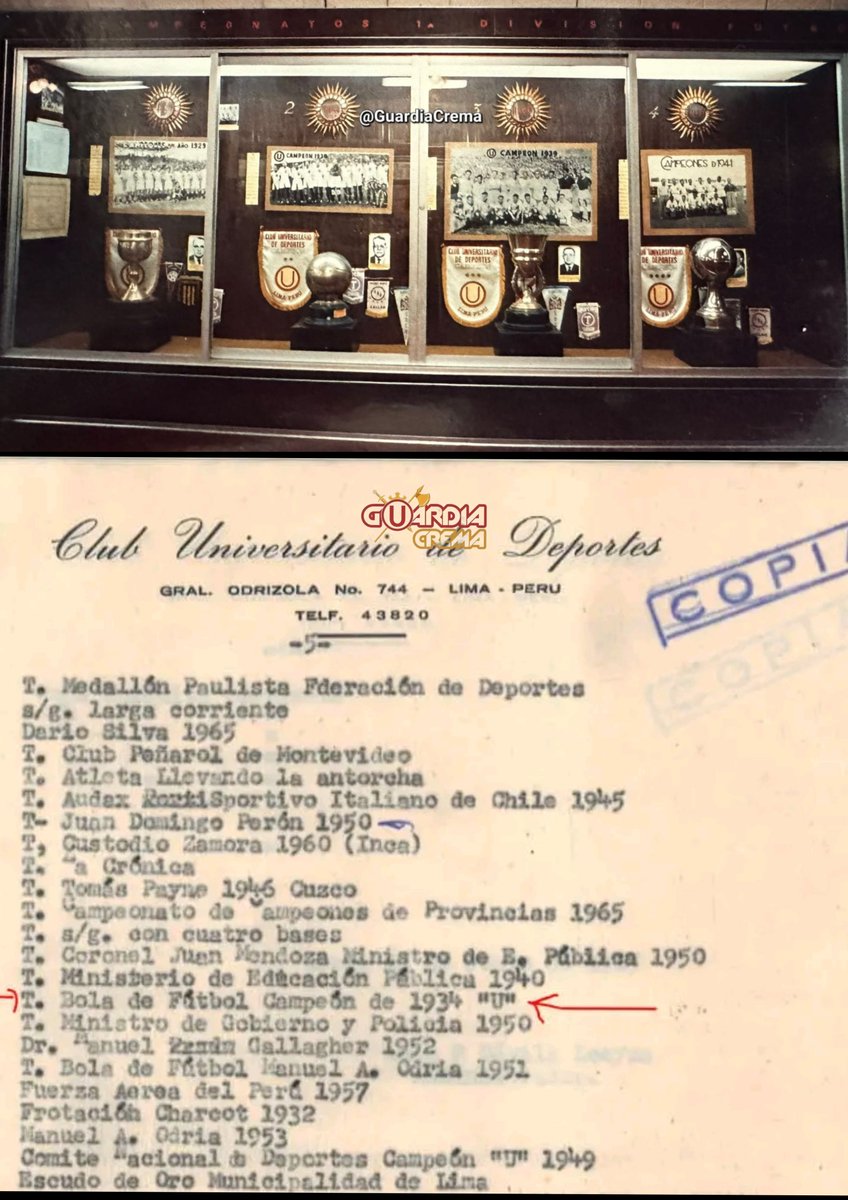 CAMPEONATOS 1a DIVISION
2
3
4
@GuardiaCrema
U CAMPEON 1939
CAMPEONES D 1941
CLUB UNIVERSITARIO
DE DEPORTES
U
LIMA PERU
CLUB UNIVERSITARIO
DE DEPORTES
U
LIMA PERU
UNIVERSITARIO
DE DEPORTES
U
LIMA PERU
GUARDIA
CREMA
Club Universitario de Deportes
GRAL. ODRIZOLA No. 744 — LIMA - PERU
TELF. 43820
-5-
COPIA
T. Medallón Paulista Fderación de Deportes
s/g. larga corriente
Dario Silva 1965
T. Club Peñarol de Montevideo
T. Atleta Llevando la antorcha
T. Audax Sportivo Italiano de Chile 1945
T- Juan Domingo Perón 1950
T, Custodio Zamora 1960 (Inca)
T. "a Crónica
T. Tomás Payne 1946 Cuzco
T. Campeonato de Campeones de Provincias 1965
T. s/g. con cuatro bases
T. Coronel Juan Mendoza Ministro de E. Pública 1950
T. Ministerio de Educación Pública 1940
T. Bola de Fútbol Campeón de 1934 "U"
T. Ministro de Gobierno y Policia 1950
Dr. Manuel Gallagher 1952
T. Bola de Fútbol Manuel A. Odria 1951
Fuerza Aerea del Perú 1957
Frotación Charcot 1932
Manuel A. Odria 1953
Comite Nacional de Deportes Campeón "U" 1949
Escudo de Oro Municipalidad de Lima